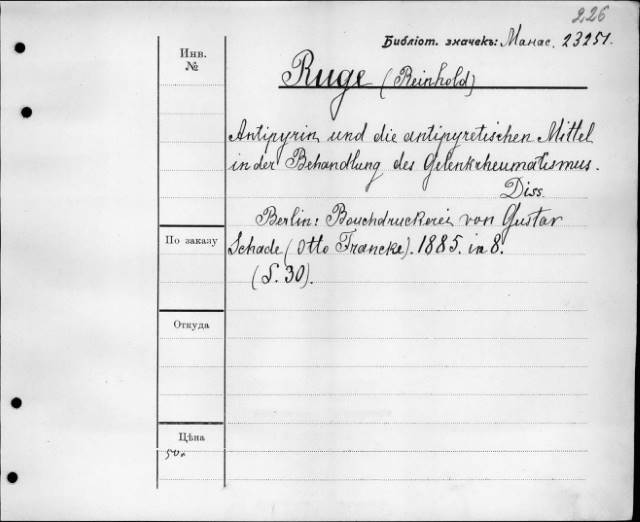 226
Библіот. значекъ: Манас. 23251.
Инв.
№
Ruge (Reinhold)
Antipyrin und die antipyretischen Mittel
in der Behandlung des Gelenkrheumatismus.
Diss.
Berlin: Bouchdruckerei von Gustav
Schade (Otto Francke). 1885. in 8.
(S. 30).
По заказу
Откуда
Цѣна